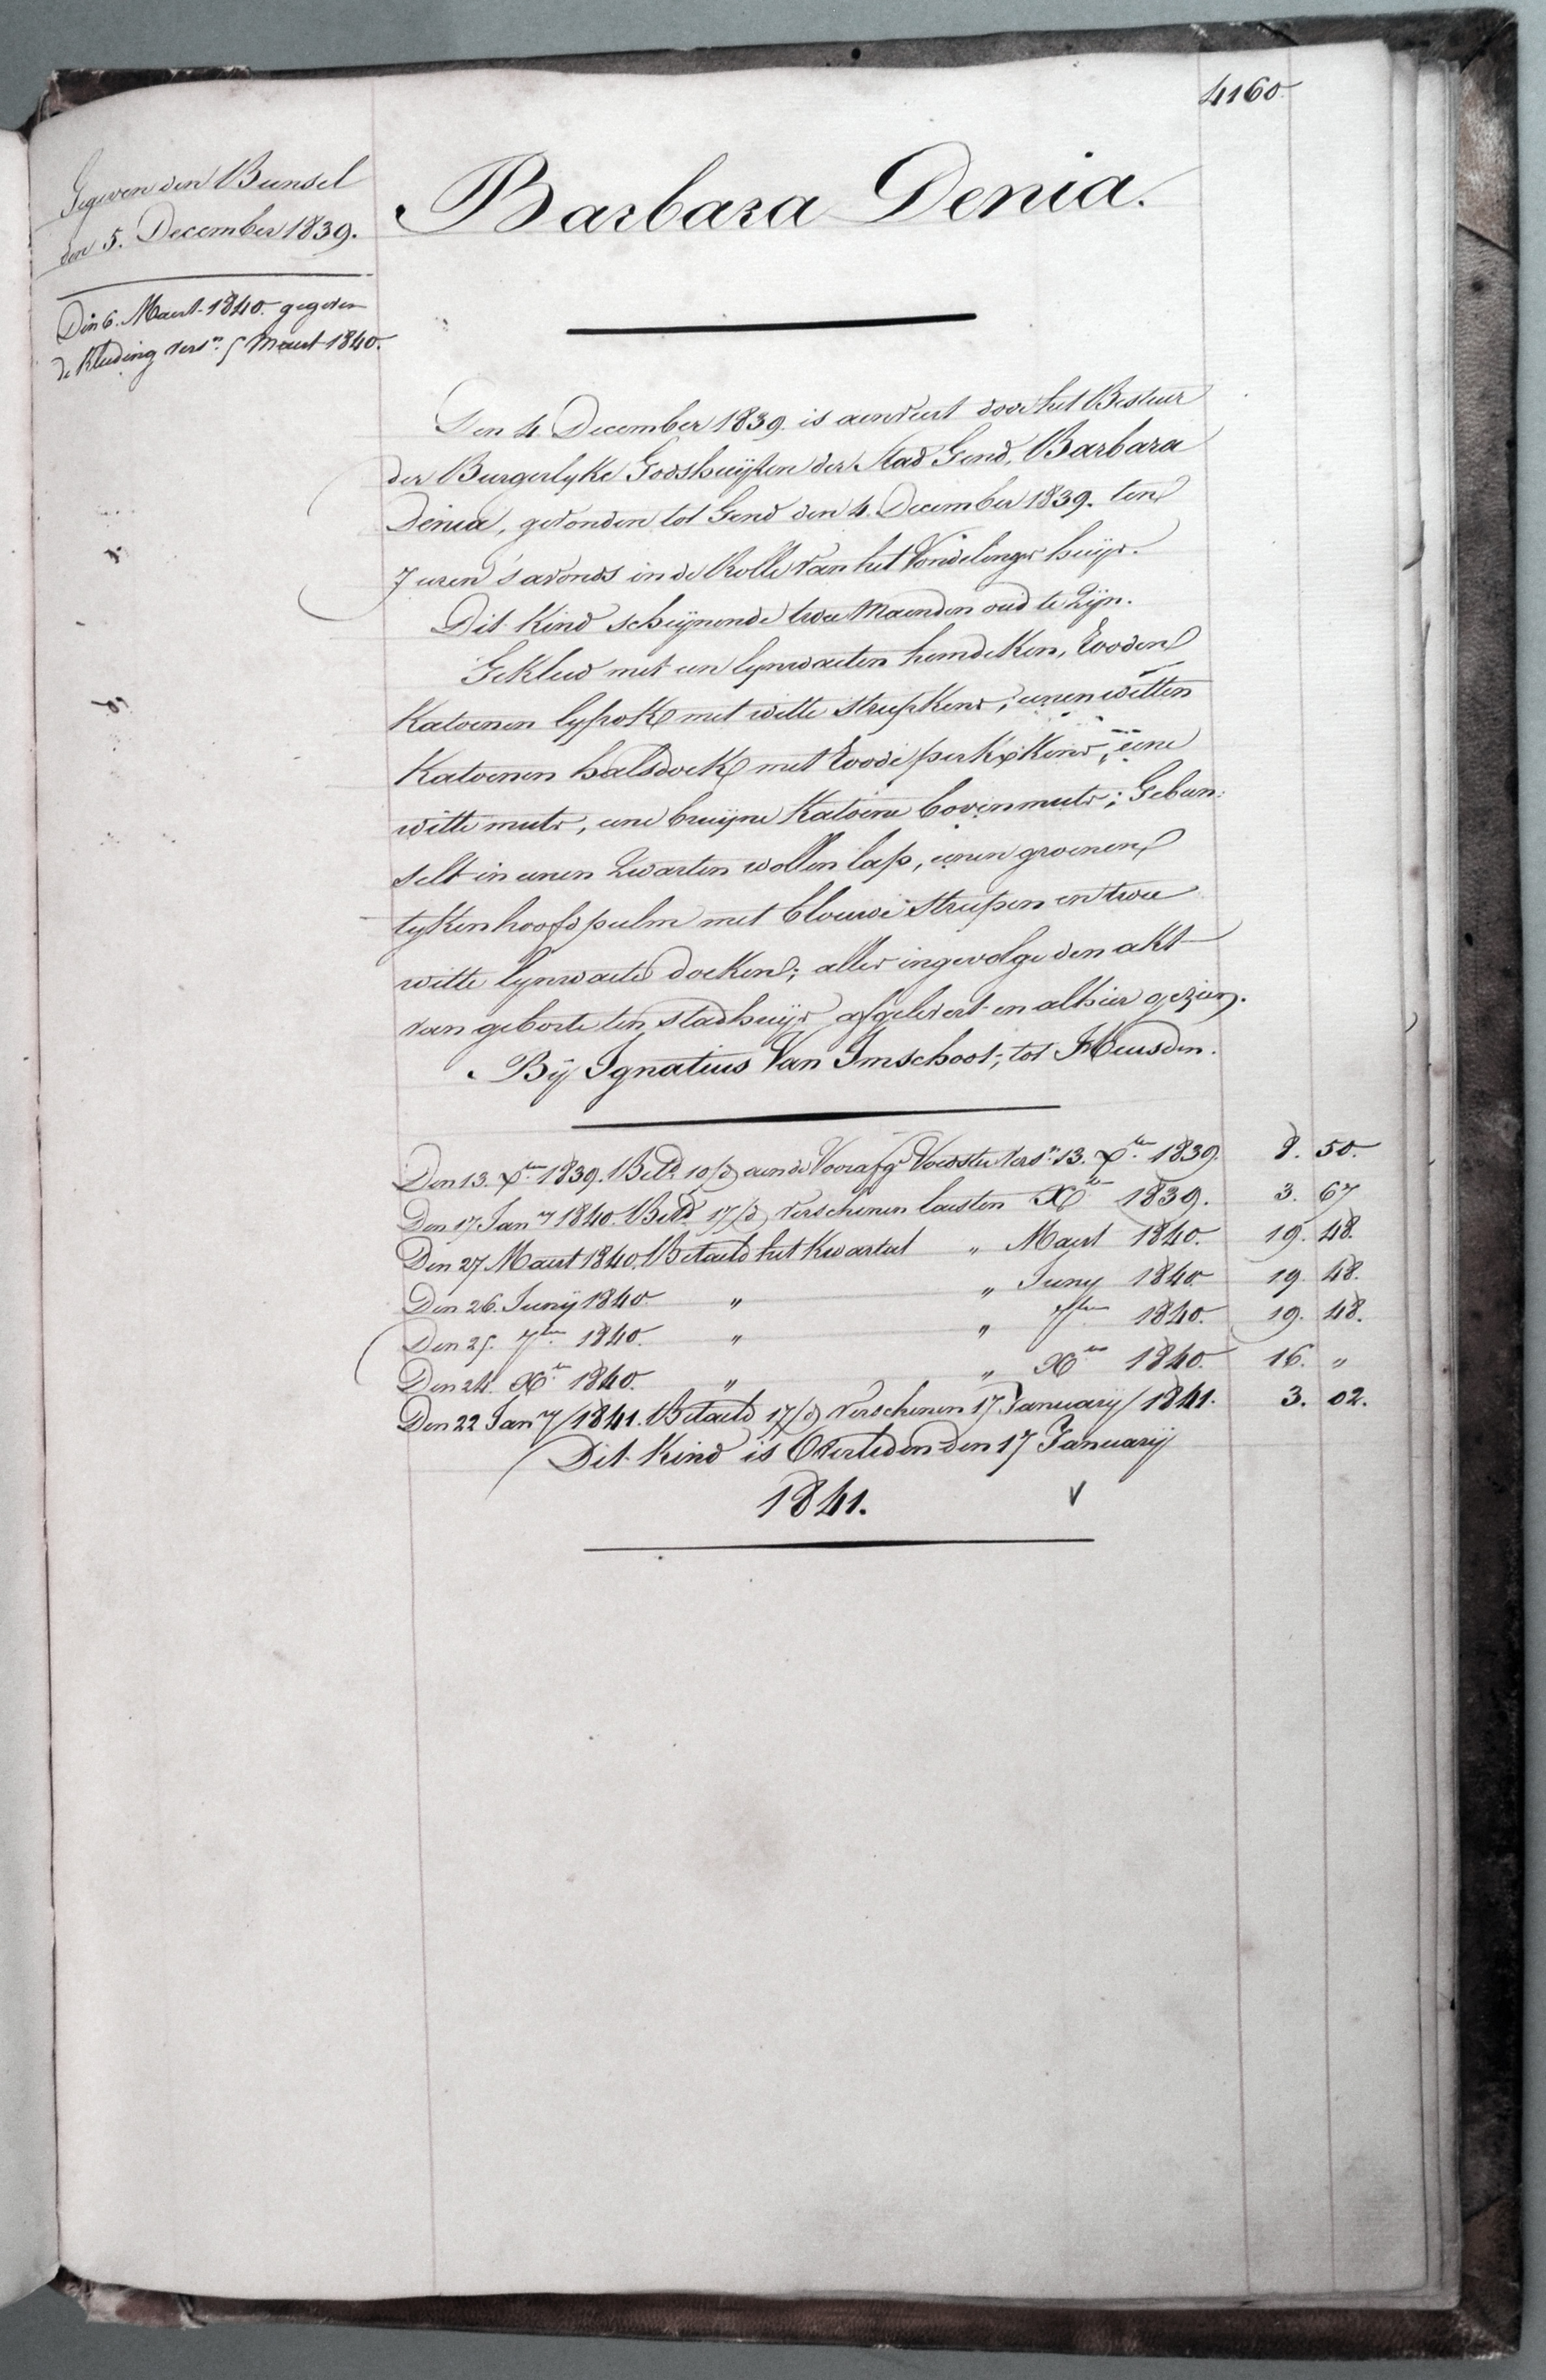 4160
Gegeven den Bunsel
den 5. December 1839.
Den 6. Maert 1840. gegeven
de Kleeding versn. 5 Maert 1840.
Barbara Denia.
Den 4. December 1839. is aenveert door het Bestuer
der Burgerlyke Godshuijsen der Stad Gend, Barbara
Denia, gevonden tot Gend den 4. December 1839. ten
7 uren 's avonds in de Rolle van het Vondelings huijs.
Dit Kind scheijnende twee Maenden oud te Zijn.
Gekleed met een lynwaeten hemdeken, Rooden
Katoenen lyfrok met witte streepkens, eenen witten
Katoenen halsdoek met Roode perkxkens, eene
witte muts, eene bruijne Katoene bovenmuts; Gebun:
selt in eenen Zwarten wollen lap, eenen groenen
tyken hoofdpulm met blauwe streepen en twee
witte lynwaete doeken; alles ingevolge den akt
van geborte ten stadhuijs afgelevert en alhier gezien.
Bij Ignatius Van Imschoot, tot Heusden.
Den 13. Xber 1839. Betd. 10/d aen de Voorafge Voedster versn. 13. Xber 1839. 8. 50.
Den 17 Jany 1840. Betd 17/d verschenen laesten Xber 1839. 3. 67
Den 27 Maert 1840. Betaeld het Kwartael " Maert 1840. 19. 48.
Den 26. Junij 1840. " " Juny 1840. 19. 48.
Den 25. 7ber 1840. " " 7ber 1840. 19. 48.
Den 24. Xber 1840. " " Xber 1840. 16. "
Den 22 Jany 1841. Betaeld 17/d verschenen 17 January 1841. 3. 02.
Dit Kind is Overleden den 17 Januarij
1841. v